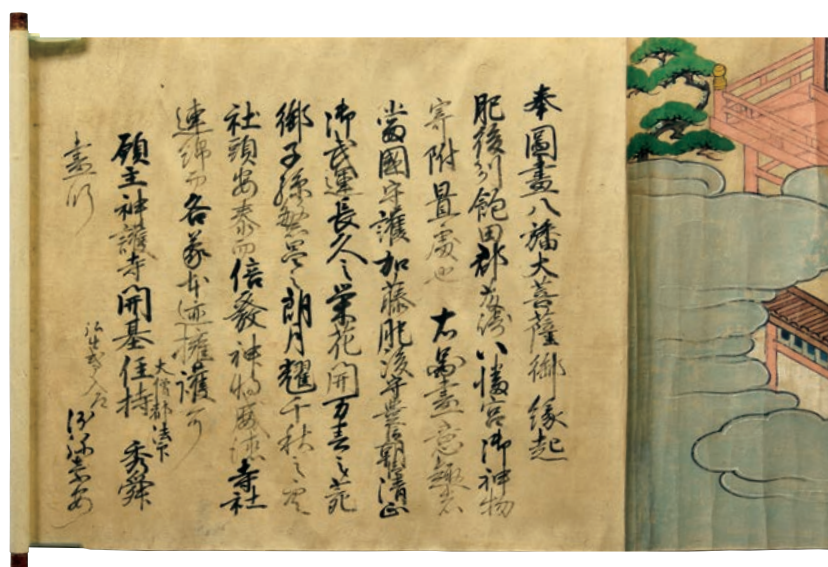 奉圖畫八幡大菩薩御縁起
肥後州飽田郡 八幡宮御神物
寄附置處也 右畫圖意趣者
當國守護加藤肥後守豊臣朝臣清正
御武運長久之栄花開万春之苑
御子孫繁昌之朗月耀千秋之
社頭安泰而倍發神 寺社
連綿而各 本迹擁護
願主神護寺開基住持 大僧都法下 秀舜
畫所